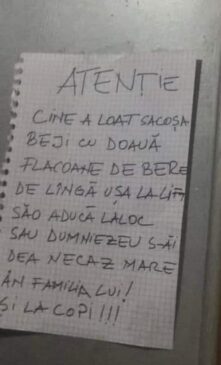 ATENȚIE
CINE A LOAT SACOȘA
BEJI CU DOAUĂ
FLACOANE DE BERE
DE LÎNGĂ UȘA LA LIFT
SĂO ADUCĂ LALOC
SAU DUMNIEZEU S-ĂI
DEA NECAZ MARE
ÂN FAMILIA LUI!
ȘI LA COPI!!!